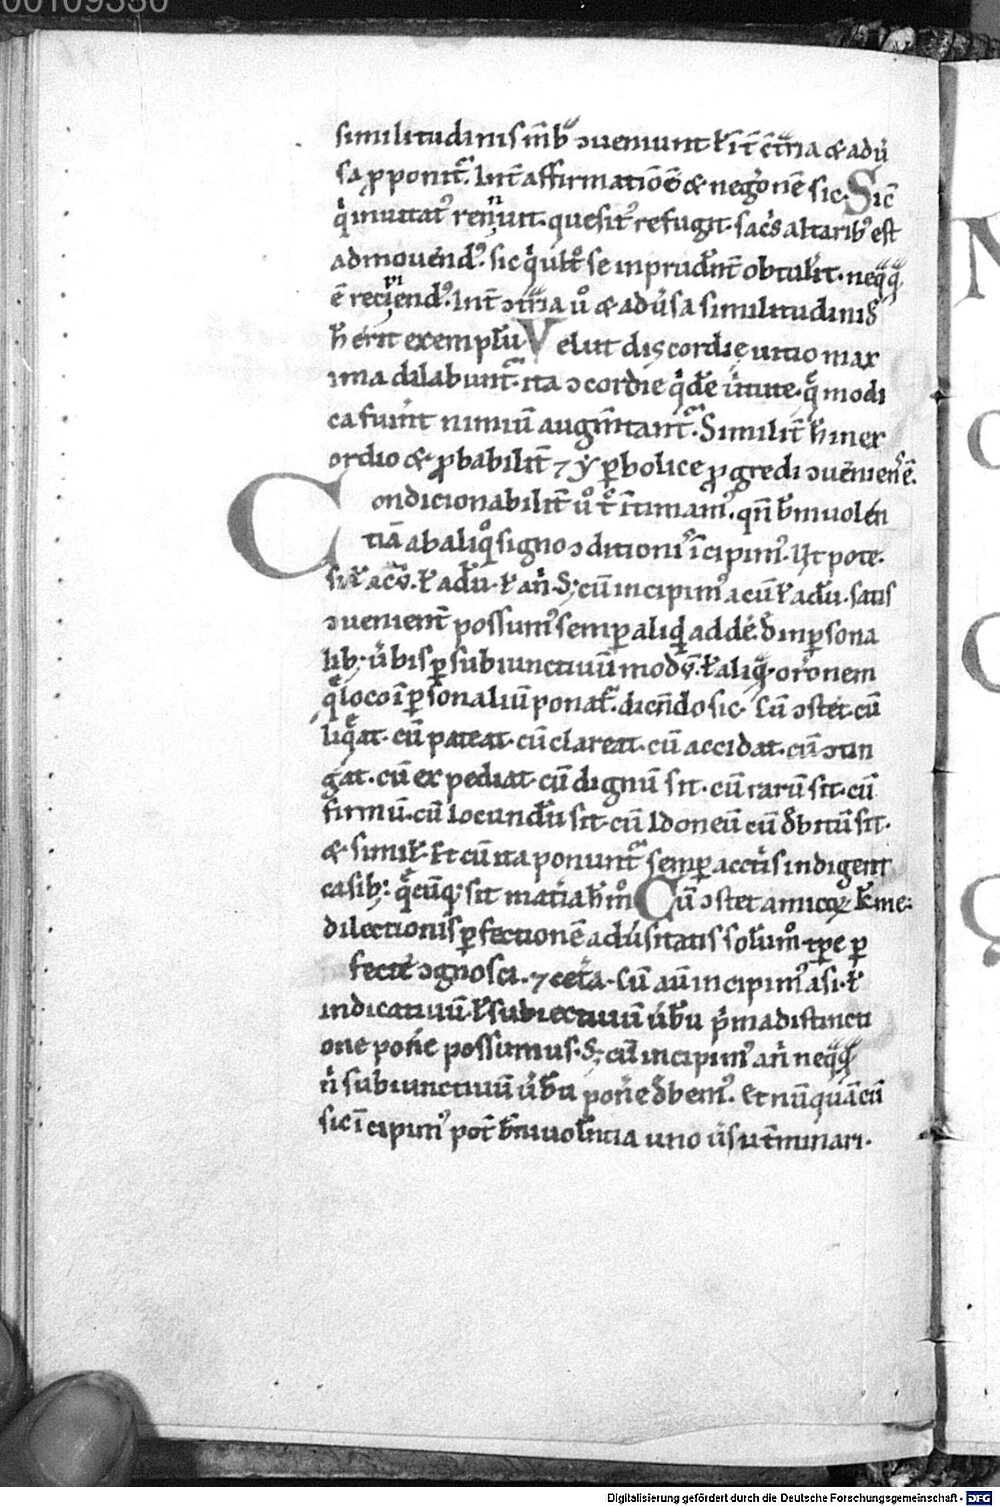 00109350
similitudinis m̄b ɔueniunt ł īt̄ ꝯt̄ria ⁊ adu̾
sa ꝓponit᷑. Int̄ affirmatiōē ⁊ neg̾onē sic. Sic̄
q̾ inuitat᷑ rennuit. quesit᷑ refugit. sac̾s altarib᷒ est
admouend᷒. sic q̾ ult᷑ se inprudn̄t̄ obtul̾it. neq̄q̄
ē recipiend᷒. Int̄ ɔt̄ria u̾ ⁊ adu̾sa similitudinis
h̄ erit exemplū Velut discordię uitio max
ima dilabunt᷑. ita ɔcordie q̾dē u̾tute. q̄ modi
ca fuīnt nimiū augm̄tant᷑. Similit̄ h̄ in ex
ordio ⁊ ꝓbabilit̄ ⁊ yꝑbolice ꝓgredi ɔueniens ē.
Condicionabilit̄ u̾ t̄c ītimam᷒. qn̄ b̄niuolen
tiā ab aliq̾ signo ɔditioni᷒ īcipim᷒. Ut pote.
si. ł ac̄s. ł adū. ł añ. S; cum incipim᷒ a cū ł adū. satis
ɔuenient̄ possum᷒ semꝑ aliq̾d addē. d̄ inꝑsona
lib; u̾bis ꝑ subiunctiuū modū. ł aliq̄. or̄onem
q̄ loco īꝑsonaliū ponat᷑. dicēdo sic. Cū ɔstet. cū
liq̄at. cū pateat. cū clareat. cū accidat. cū ɔtin
gat. cū expediat. cū dignū sit. cū rarū sit. cū
firmū. cū iocundū sit. cū idoneū cū d̄bitū sit.
⁊ simił. Et cū ita ponunt᷑ semꝑ acc̾tis indigent
casib;. q̄cūq; sit mat̾ia h̄ m̊ Cū ɔstet amicoꝝ ł me:
dilectionis ꝑfectionē adu̾sitatis solūm̊. tꝑe ꝑ
fecte ɔgnosci. ⁊ cet̾a. Cū aū incipim᷒ a si. ł
indicatiuū ł subiectiuū u̾bū p̾ma distincti
one pone̾ possumus. S; cū incipim᷒ añ neq̄q̄
ñ subiunctiuū u̾bū pone̾ d̄bem᷒. Et nūquā cū
sic īcipim᷒ pot̄ b̄niuolentia uno u̾su t̄minari.
Digitalisierung gefördert durch die Deutsche Forschungsgemeinschaft - DFG